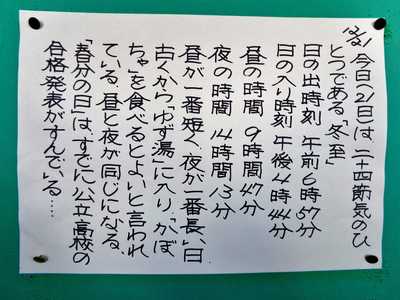 12/21
今日(21日)は、二十四節気のひ
とつである、「冬至」
日の出時刻 午前6時57分
日の入り時刻 午後4時44分
昼の時間 9時間47分
夜の時間 14時間13分
昼が一番短く、夜が一番長い日。
古くから「ゆず湯」に入り、「かぼ
ちゃ」を食べるとよいと言われ
ている。昼と夜が同じになる、
「春分の日」は、すでに、公立高校の
合格発表がすんでいる……